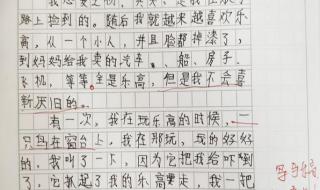 路上捡到的。随后我就越来越喜欢乐
高,从一个小人,并且脸都掉漆了,
到妈妈给我卖的汽车、船、房子、
飞机,等等。全是乐高,但是我不会喜
新厌旧的。
有一次,我在玩乐高的时候,一
只鸟在窗台上,我在那玩,玩的好好
的,我叫了一下,因为它把我给吓到
了,它抓起了我的乐高要走,我一把